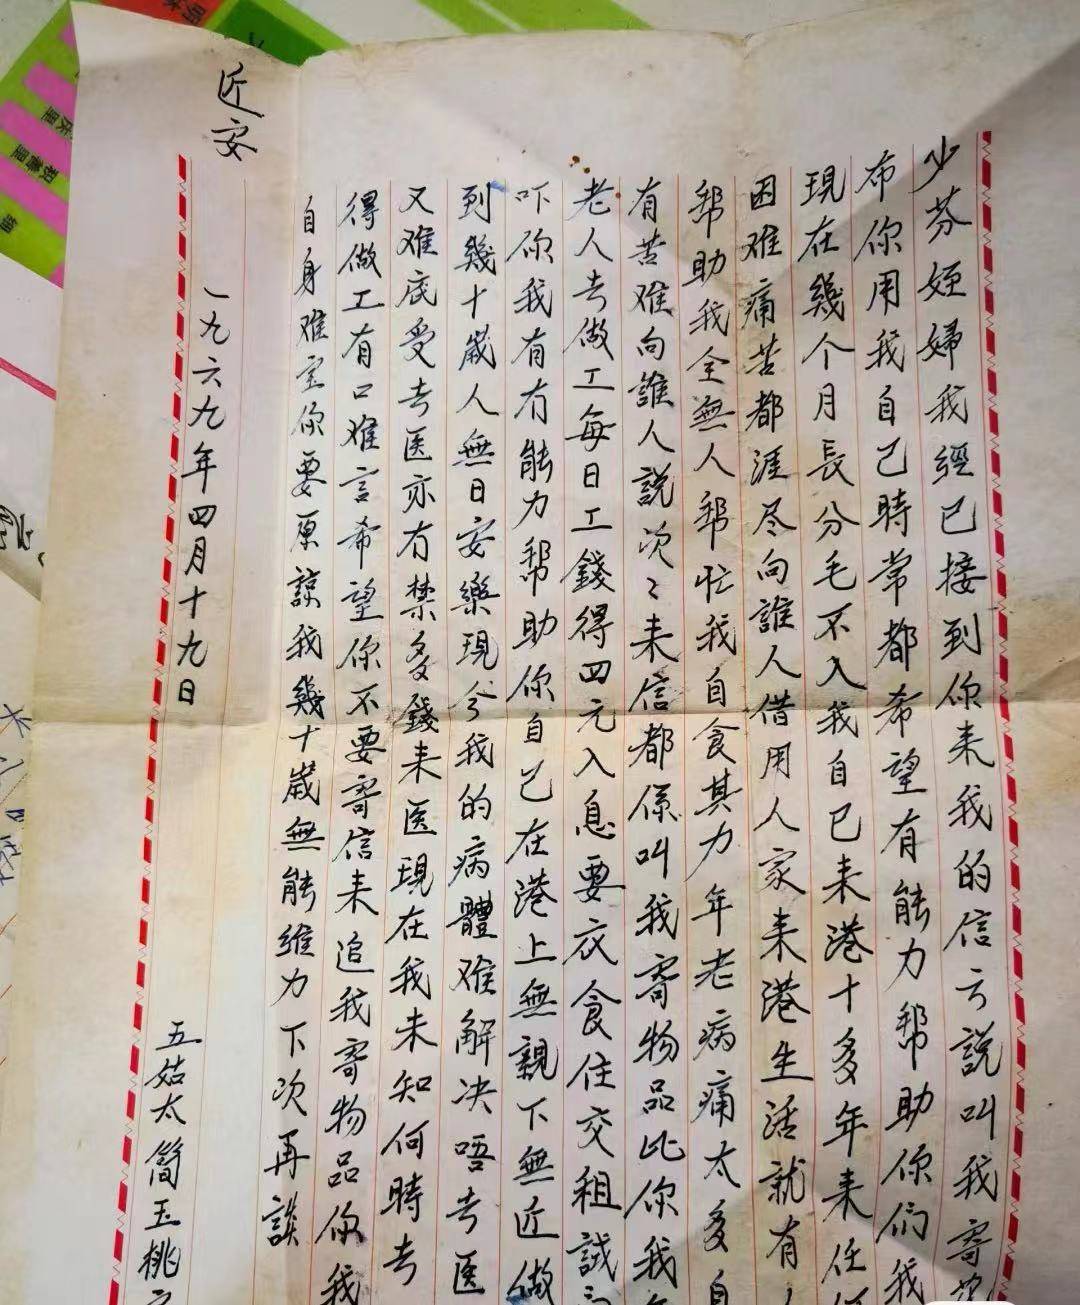 少芬姪婦我經已接到你来我的信云説叫我寄
布你用我自己時常都希望有能力幚助你们我
現在幾个月長分毛不入我自己来港十多年来任
困难痛苦都涯尽向誰人借用人家来港生活就有
幚助我全無人幚忙我自食其力年老病痛太多自
有苦难向誰人説次々来信都係叫我寄物品比你我
老人去做工每日工錢得四元入息要衣食住交租誠
吓你我有冇能力幚助你自己在港上無親下無近做
到幾十歲人無日安樂現今我的病體难解决唔去医
又难底受去医亦冇禁多錢来医現在我未知何時去
得做工有口难言希望你不要寄信来追我寄物品你我
自身难宝你要原諒我幾十歲無能維力下次再談
近安
一九六九年四月十九日
五姑太簡玉桃
积善里
庆里